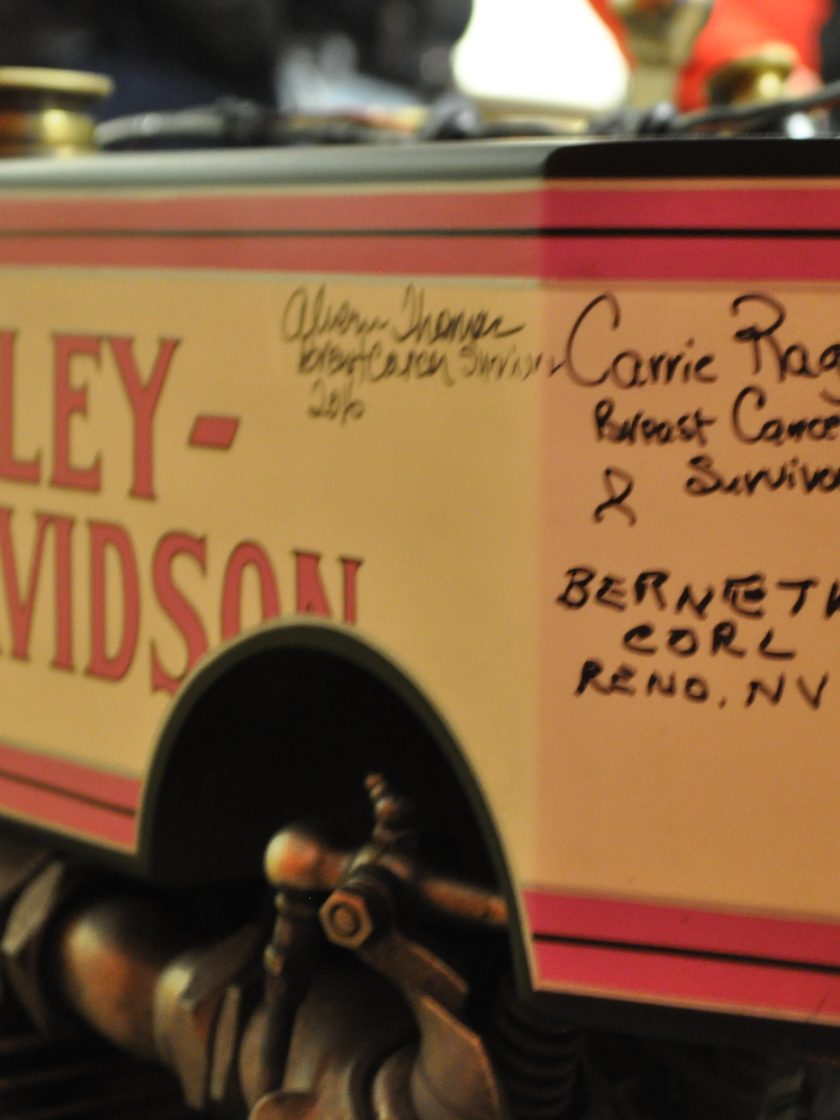 LEY-
AVIDSON
Alison Thomas
Breast Cancer Survivor
2016
Carrie Rag
Breast Cance
Survivo
BERNETH
CORL
RENO, NV